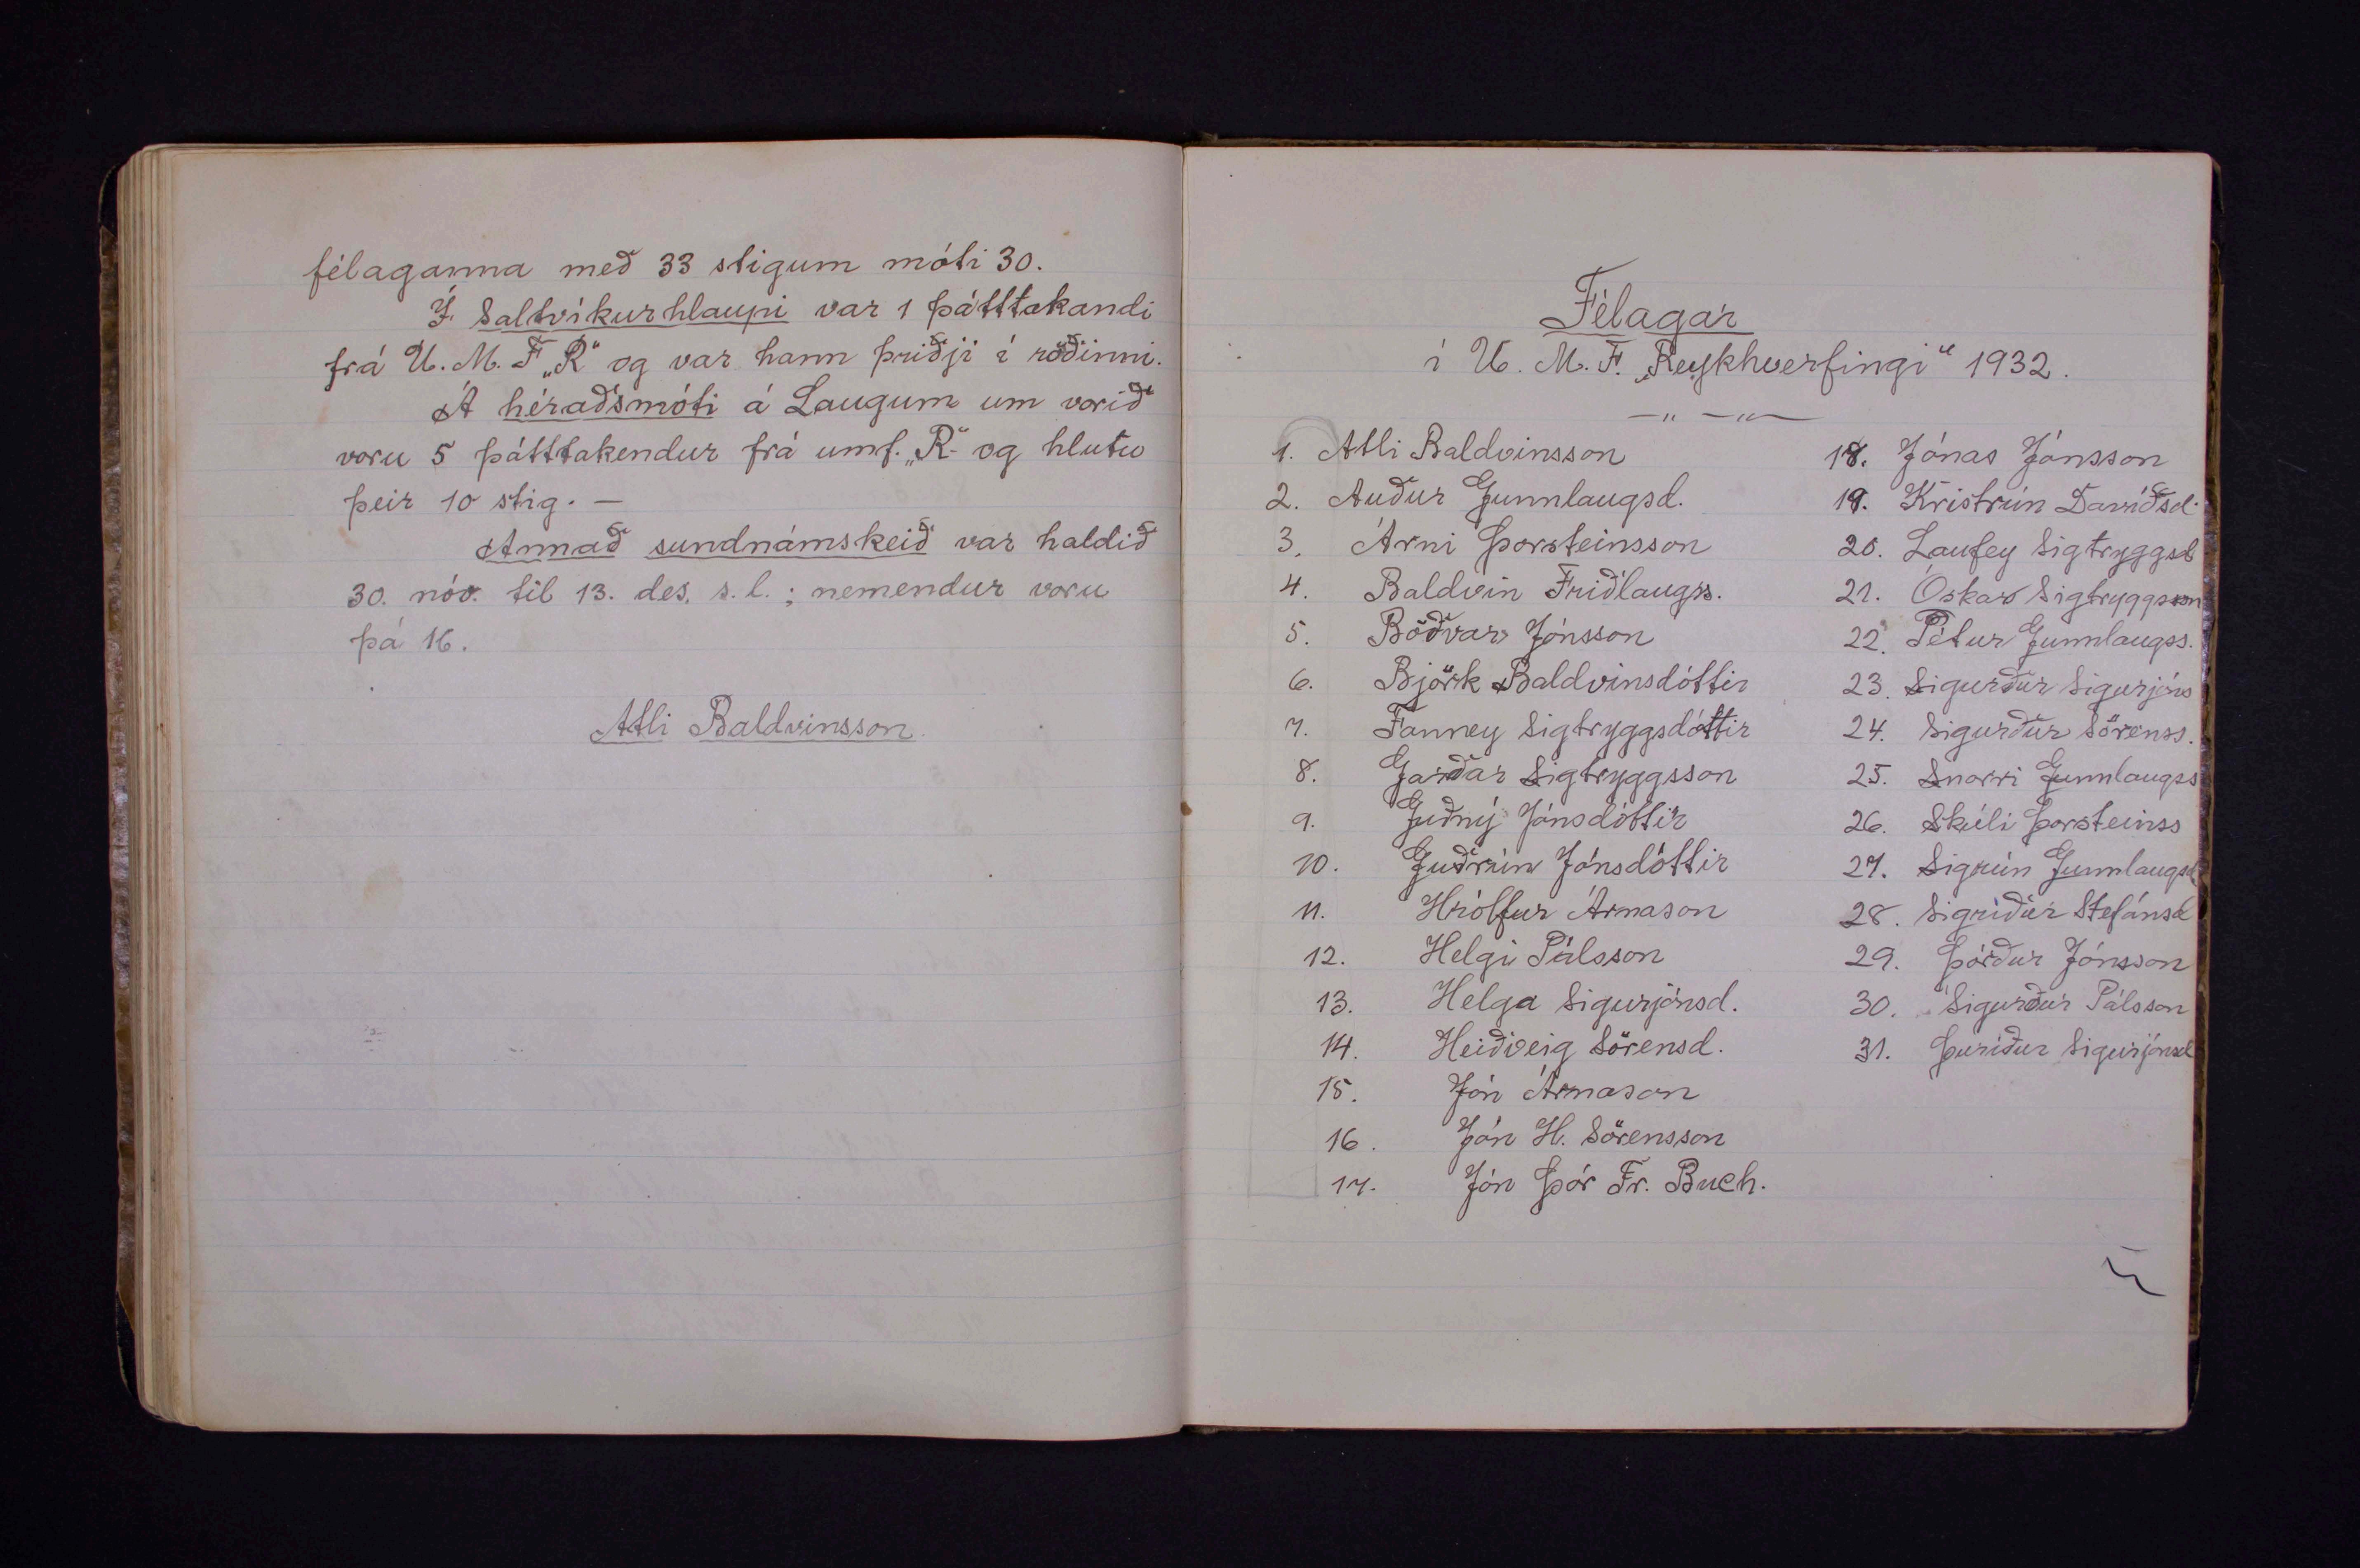 félaganna með 33 stigum móti 30.
Í Saltvíkurhlaupi var 1 þátttakandi
frá U. M. F „R“ og var hann þriðji í röðinni.
Á héraðsmóti á Laugum um vorið
voru 5 þátttakendur frá umf. „R“ og hlutu
þeir 10 stig. —
Annað sundnámskeið var haldið
30. nóv. til 13. des. s.l.; nemendur voru
þá 16.
Atli Baldvinsson.
Félagar
í U. M. F. „Reykhverfingi“ 1932.
1. Atli Baldvinsson
2. Auður Gunnlaugsd.
3. Árni Þorsteinsson
4. Baldvin Friðlaugss.
5. Böðvar Jónsson
6. Björk Baldvinsdóttir
7. Fanney Sigtryggsdóttir
8. Garðar Sigtryggsson
9. Guðný Jónsdóttir
10. Guðrún Jónsdóttir
11. Hrólfur Árnason
12. Helgi Pálsson
13. Helga Sigurjónsd.
14. Heiðveig Sörensd.
15. Jón Árnason
16. Jón H. Sörensson
17. Jón Þór Fr. Buch.
18. Jónas Jónsson
19. Kristrún Davíðsd.
20. Laufey Sigtryggsd
21. Óskar Sigtryggsson
22. Pétur Gunnlaugss.
23. Sigurður Sigurjóns
24. Sigurður Sörenss.
25. Snorri Gunnlaugss
26. Skúli Þorsteinss
27. Sigrún Gunnlaugsd
28. Sigríður Stefánsd
29. Þórður Jónsson
30. Sigurður Pálsson
31. Þuríður Sigurjónsd